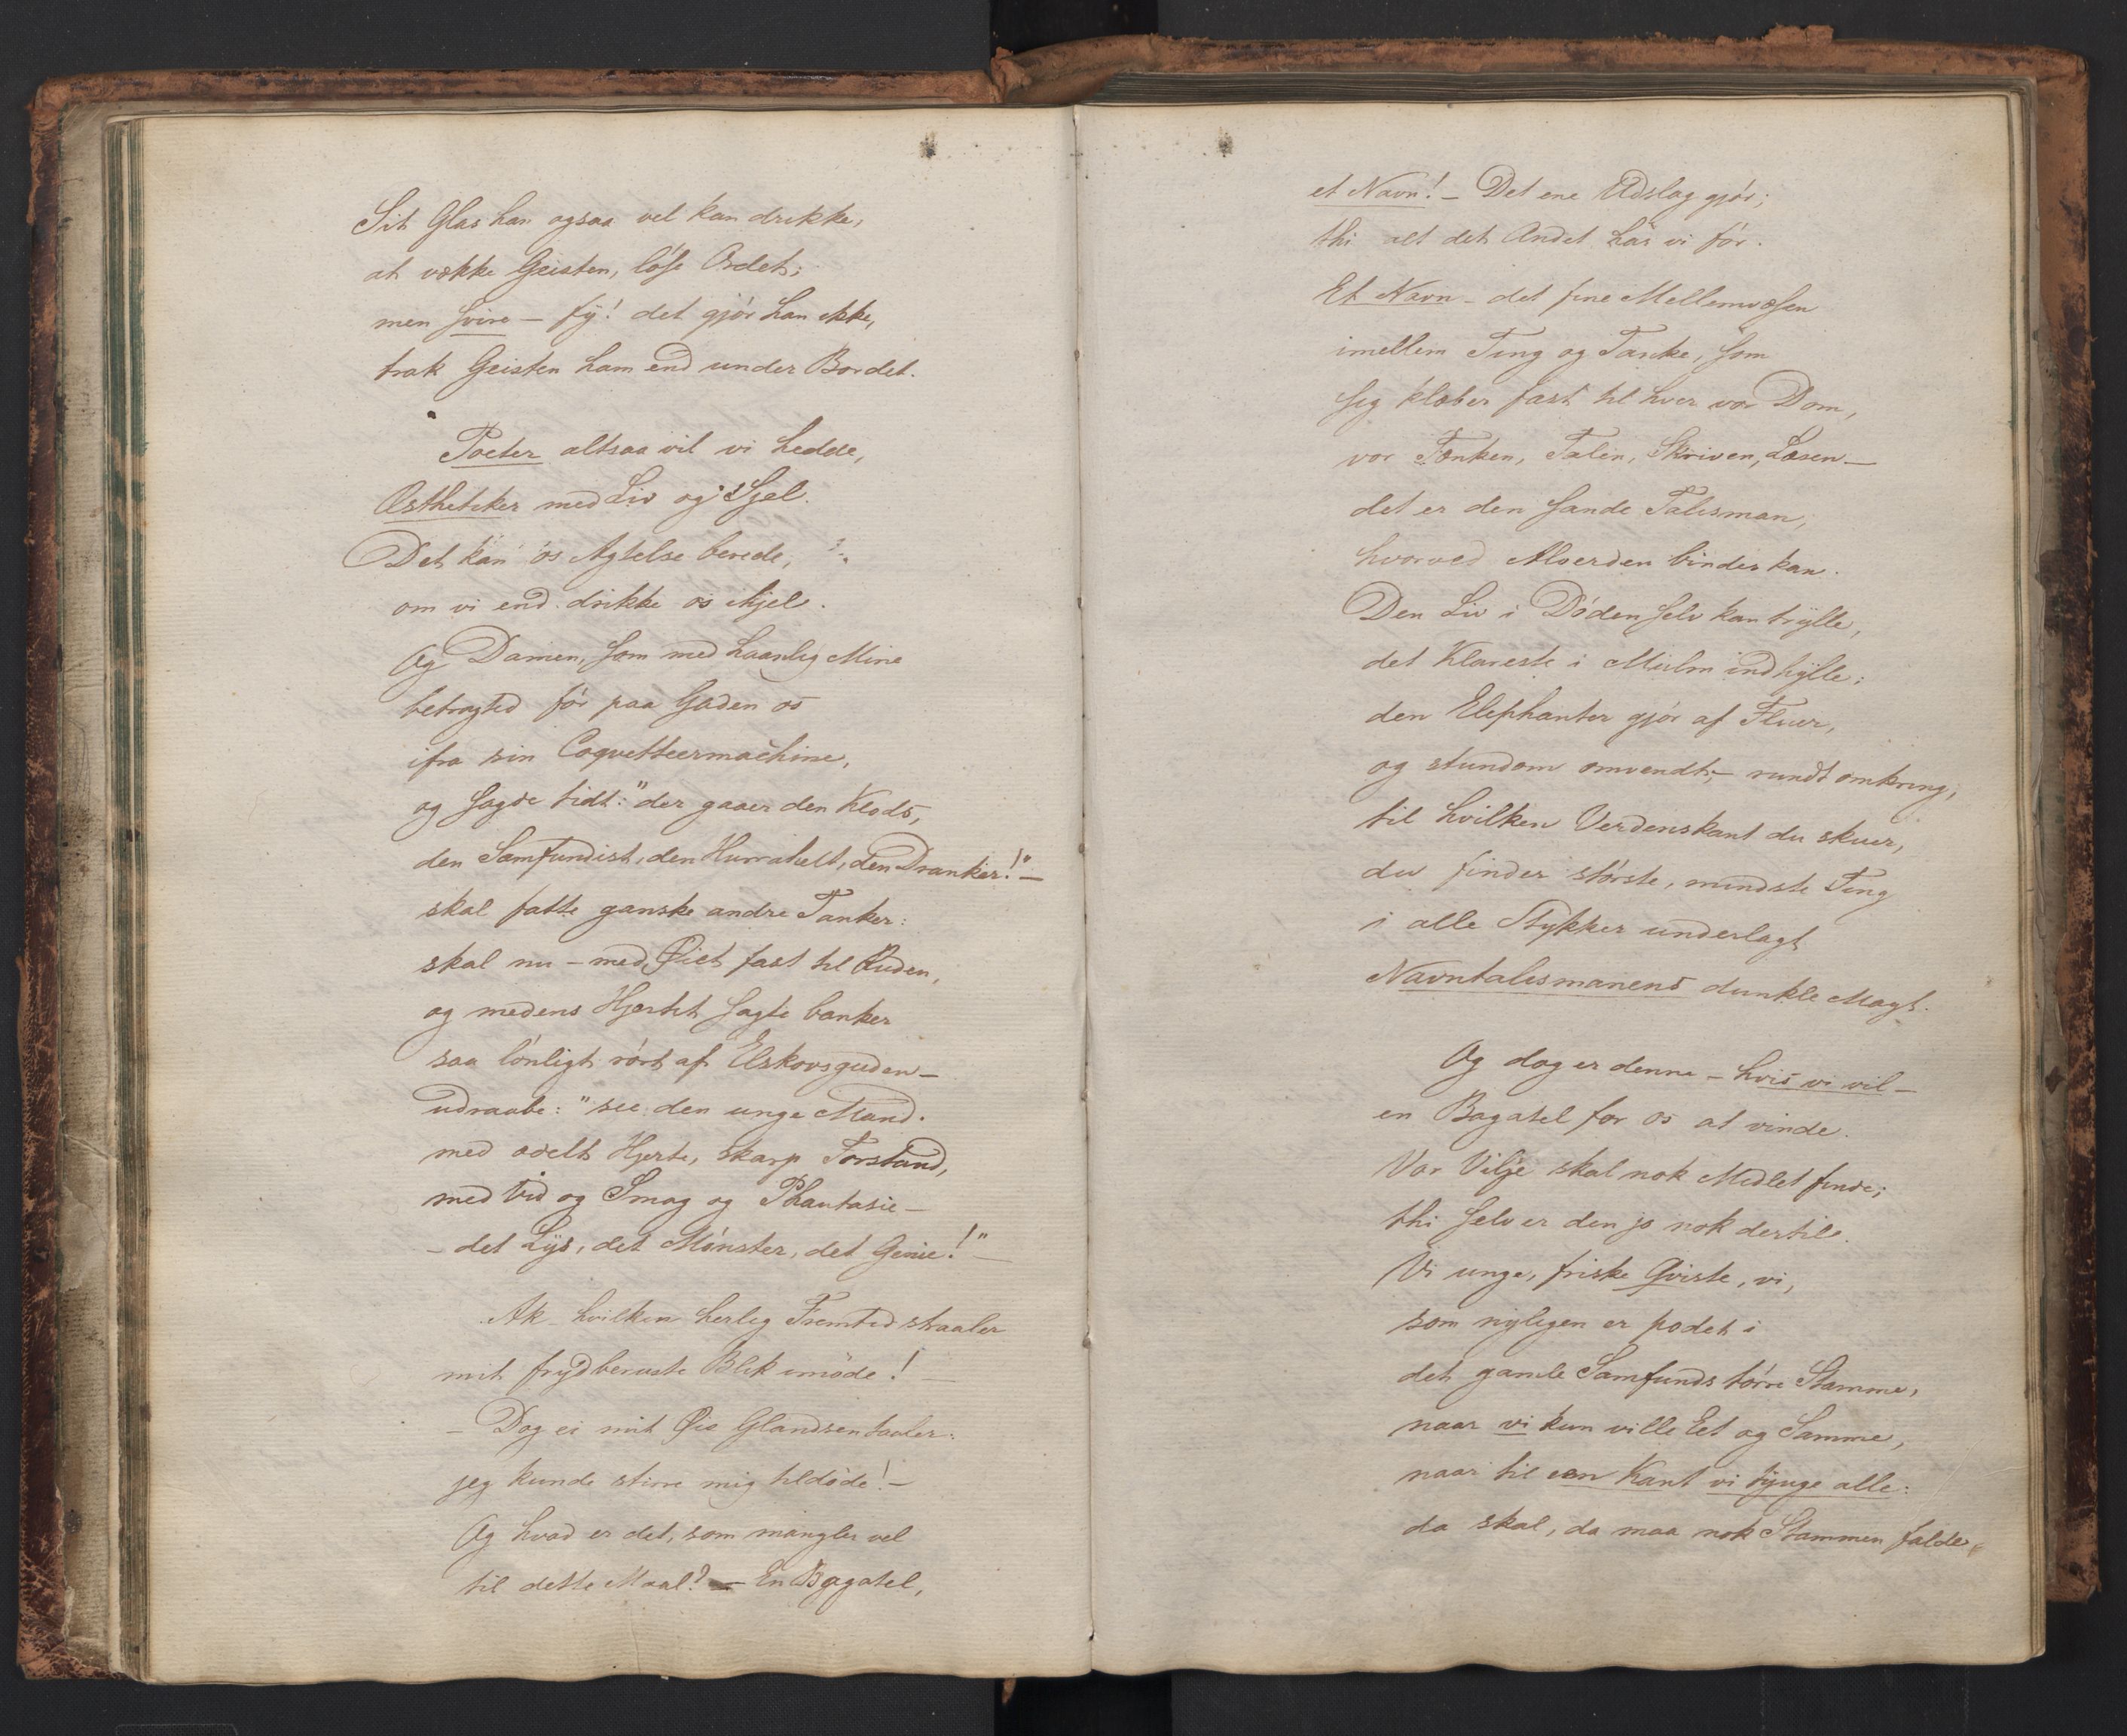 Sit Glas han ogsaa vel kan drikke,
at vække Geisten, løse Ordet;
men svire – fy! det gjør han ikke,
trak Geisten ham end under Bordet.
Poeter altsaa vil vi hedde,
Æsthetiker med Liv og Sjel.
Det kan os Agtelse berede,
om vi end drikke os ihjel.
Og Damen, som med haanlig Mine
betragted før paa Gaden os
ifra sin Coquetteermachine,
og sagde tidt: "der gaaer den Klods,
den Samfundist, den Hurrahelt, den Dranker!" –
skal fatte ganske andre Tanker:
skal nu – med Øiet fast til Ruden,
og medens Hjertet sagte banker
saa lønligt rørt af Elskovsguden –
udraabe: "see den unge Mand.
med ædelt Hjerte, skarp Forstand,
med Vid og Smag og Phantasie –
– det Lys, det Mønster, det Genie!" –
Ak hvilken herlig Fremtid straaler
mit frydberuste Blik imøde! –
– Dog ei mit Øie Glandsen taaler:
jeg kunde stirre mig tildøde! –
Og hvad er det, som mangler vel
til dette Maal? – En Bagatel,
et Navn! – Det ene Udslag gjør;
thi alt det Andet har vi før.
Et Navn – det fine Mellemvæsen
imellem Ting og Tanke, som
sig klæber fast til hver vor Dom,
vor Tænken, Talen, Skriven, Læsen –
det er den sande Talisman,
hvorved Alverden bindes kan.
Den Liv i Døden selv kan trylle,
det Klareste i Mulm indhylle;
den Elephanter gjør af Fluer,
og stundom omvendt; – rundt omkring,
til hvilken Verdenskant du skuer,
du finder største, mindste Ting
i alle Stykker underlagt
Navntalismanens dunkle Magt.
Og dog er denne – hvis vi vil –
en Bagatel for os at vinde.
Vor Vilje skal nok Midlet finde;
thi selv er den jo nok dertil.
Vi unge, friske Qviste, vi,
som nyligen er podet i
det gamle Samfunds tørre Stamme,
naar vi kun ville Eet og Samme,
naar til een Kant vi tynge alle:
da skal, da maa nok Stammen falde,